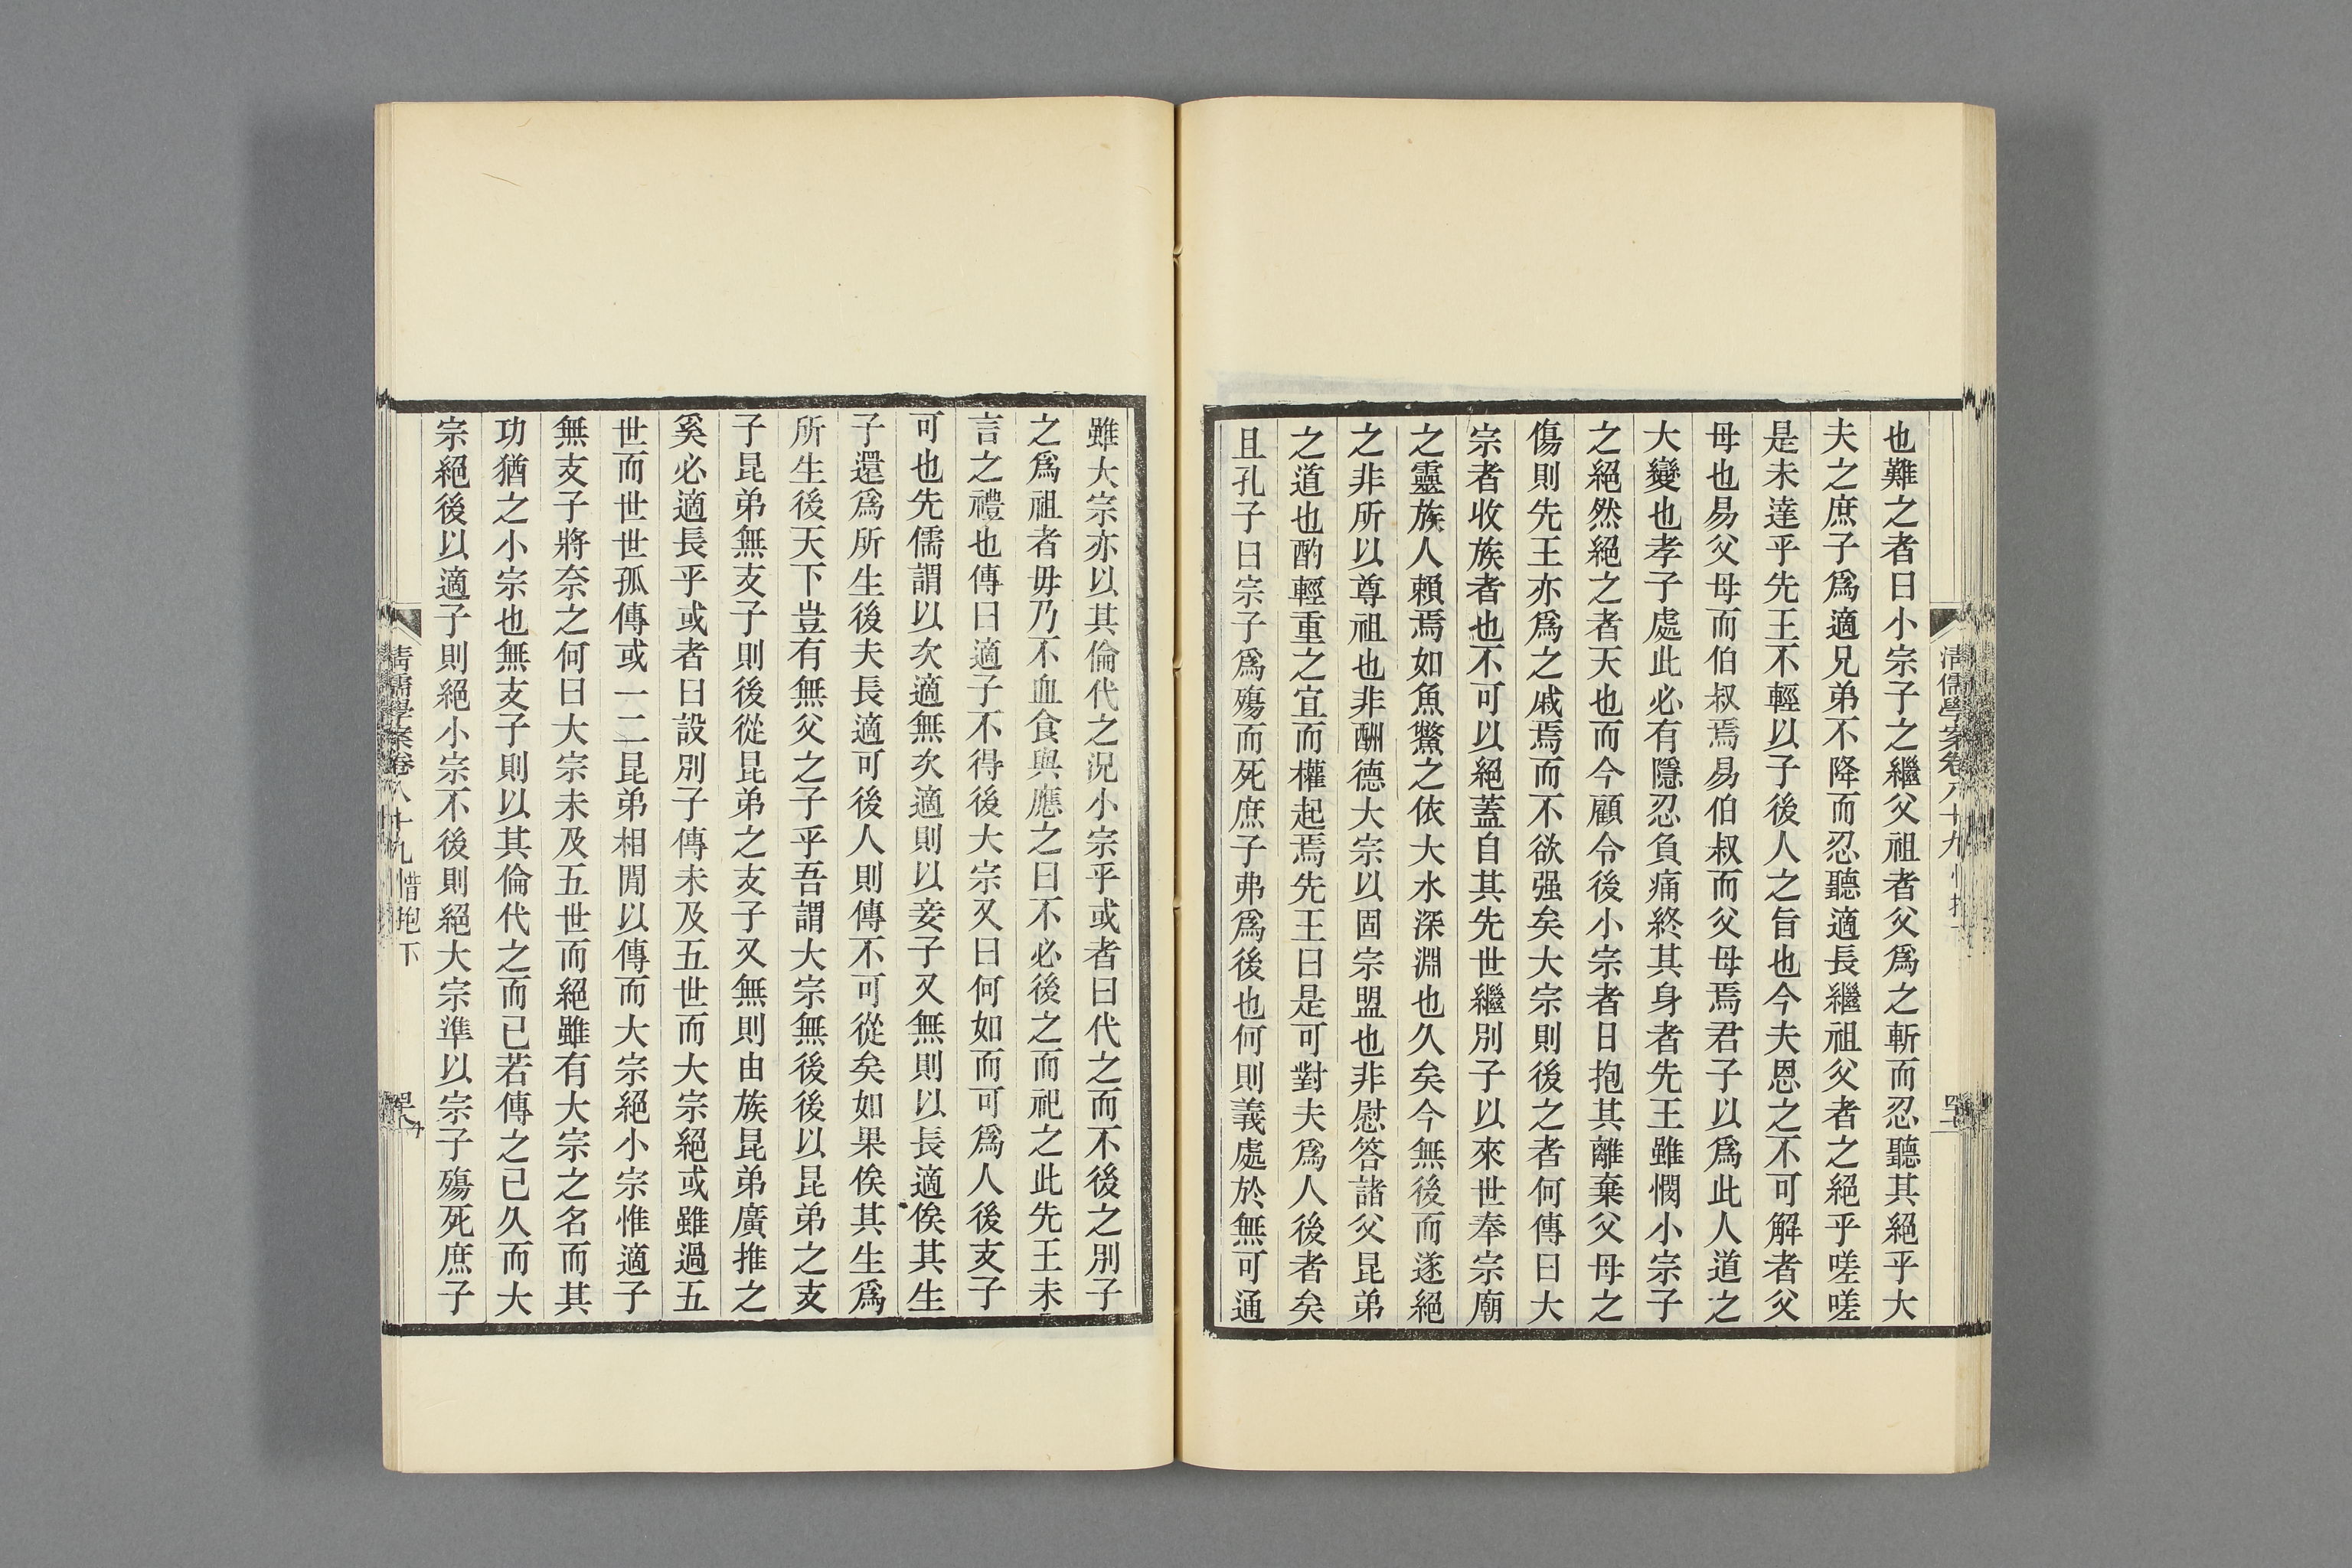 也難之者曰小宗子之繼父祖者父爲之斬而忍聽其絕乎大
夫之庶子爲適兄弟不降而忍聽適長繼祖父者之絕乎嗟嗟
是未達乎先王不輕以子後人之旨也今夫恩之不可解者父
母也易父母而伯叔焉易伯叔而父母焉君子以爲此人道之
大變也孝子處此必有隱忍負痛終其身者先王雖憫小宗子
之絕然絕之者天也而今顧令後小宗者日抱其離棄父母之
傷則先王亦爲之戚焉而不欲强矣大宗則後之者何傳曰大
宗者收族者也不可以絕蓋自其先世繼別子以來世奉宗廟
之靈族人賴焉如魚鱉之依大水深淵也久矣今無後而遂絕
之非所以尊祖也非酬德大宗以固宗盟也非慰答諸父昆弟
之道也酌輕重之宜而權起焉先王曰是可對夫爲人後者矣
且孔子曰宗子爲殤而死庶子弗爲後也何則義處於無可通
清儒學案卷八十九
雖大宗亦以其倫代之況小宗乎或者曰代之而不後之別子
之爲祖者毋乃不血食與應之曰不必後之而祀之此先王未
言之禮也傳曰適子不得後大宗又曰何如而可爲人後支子
可也先儒謂以次適無次適則以妾子又無則以長適俟其生
子還爲所生後夫長適可後人則傳不可從矣如果俟其生爲
所生後天下豈有無父之子乎吾謂大宗無後後以昆弟之支
子昆弟無支子則後從昆弟之支子又無則由族昆弟廣推之
奚必適長乎或者曰設別子傳未及五世而大宗絕或雖過五
世而世世孤傳或一二昆弟相閒以傳而大宗絕小宗惟適子
無支子將奈之何曰大宗未及五世而絕雖有大宗之名而其
功猶之小宗也無支子則以其倫代之而已若傳之已久而大
宗絕後以適子則絕小宗不後則絕大宗準以宗子殤死庶子
清儒學案卷八十九 惜抱下